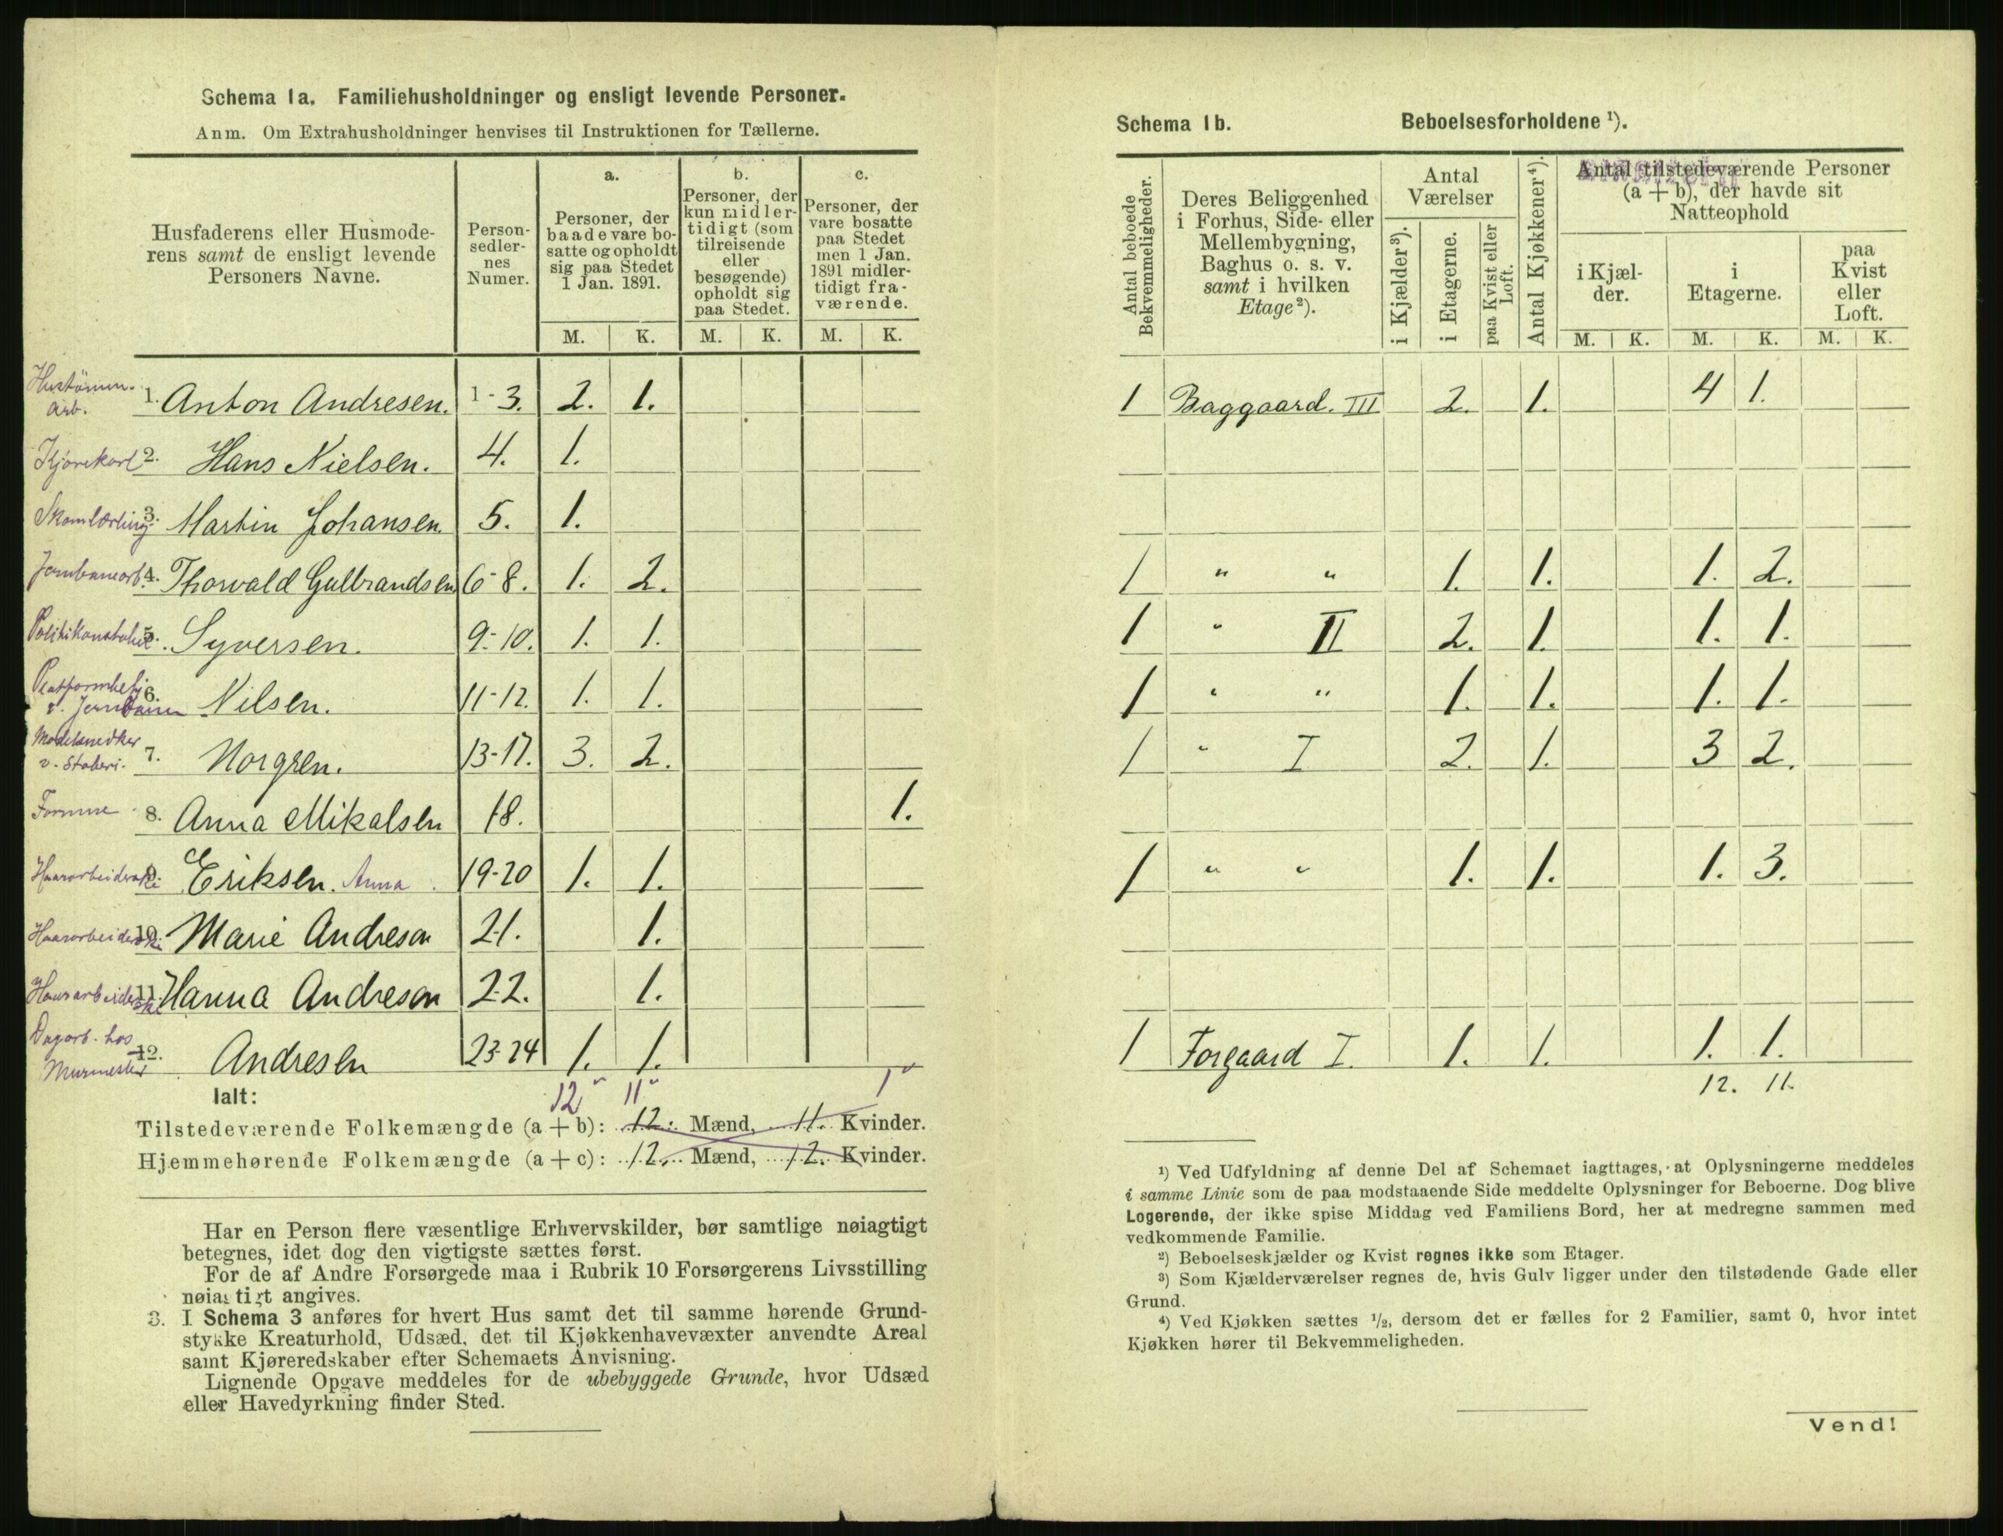 Schema 1a. Familiehusholdninger og ensligt levende Personer.
Anm. Om Extrahusholdninger henvises til Instruktionen for Tællerne.
Husfaderens eller Husmoderens samt de ensligt levende Personers Navne.
Personsedlernes Numer.
a.
Personer, der baade vare bosatte og opholdt sig paa Stedet 1 Jan. 1891.
b.
Personer, der kun midlertidigt (som tilreisende eller besøgende) opholdt sig paa Stedet.
c.
Personer, der vare bosatte paa Stedet men 1 Jan. 1891 midlertidigt fraværende.
M. K. M. K. M. K.
1. Anton Andresen. 1-3. 2. 1.
Kjørekarl 2. Hans Nielsen. 4. 1.
3. Martin Johansen. 5. 1.
Jernbanearb. 4. Thorvald Gulbrandsen 6-8. 1. 2.
Politikonstabel 5. Syversen. 9-10. 1. 1.
6. Nilsen. 11-12. 1. 1.
Modelsnedker 7. Norgren. 13-17. 3. 2.
8. Anna Mikalsen 18. 1.
9. Eriksen. Anna 19-20 1. 1.
10. Marie Andreson 21. 1.
11. Hanna Andreson 22. 1.
Dagarb. hos Murmester 12. Andresen 23-24 1. 1.
Ialt: 12 11 1
Tilstedeværende Folkemængde (a + b): 12. Mænd, 11. Kvinder.
Hjemmehørende Folkemængde (a + c): 12. Mænd, 12. Kvinder.
Har en Person flere væsentlige Erhvervskilder, bør samtlige nøiagtigt
betegnes, idet dog den vigtigste sættes først.
For de af Andre Forsørgede maa i Rubrik 10 Forsørgerens Livsstilling
nøiagtigt angives.
3. I Schema 3 anføres for hvert Hus samt det til samme hørende Grund-
stykke Kreaturhold, Udsæd, det til Kjøkkenhavevæxter anvendte Areal
samt Kjøreredskaber efter Schemaets Anvisning.
Lignende Opgave meddeles for de ubebyggede Grunde, hvor Udsæd
eller Havedyrkning finder Sted.
Schema 1b. Beboelsesforholdene ¹).
Antal beboede Bekvemmeligheder.
Deres Beliggenhed i Forhus, Side- eller Mellembygning, Baghus o. s. v. samt i hvilken Etage ²).
Antal Værelser
i Kjælder ³).
i Etagerne.
paa Kvist eller Loft.
Antal Kjøkkener ⁴).
Antal tilstedeværende Personer (a + b), der havde sit Natteophold
i Kjælder.
i Etagerne.
paa Kvist eller Loft.
M. K. M. K. M. K.
1 Baggaard. III 2. 1. 4 1.
1 " " 1. 1. 1. 2.
1 " II 2. 1. 1. 1.
1 " " 1. 1. 1. 1.
1 " I 2. 1. 3 2.
1 " " 1. 1. 1. 3.
1 Forgaard I. 1. 1. 1. 1.
12. 11.
¹) Ved Udfyldning af denne Del af Schemaet iagttages, at Oplysningerne meddeles
i samme Linie som de paa modstaaende Side meddelte Oplysninger for Beboerne. Dog blive
Logerende, der ikke spise Middag ved Familiens Bord, her at medregne sammen med
vedkommende Familie.
²) Beboelseskjælder og Kvist regnes ikke som Etager.
³) Som Kjælderværelser regnes de, hvis Gulv ligger under den tilstødende Gade eller
Grund.
⁴) Ved Kjøkken sættes ½, dersom det er fælles for 2 Familier, samt 0, hvor intet
Kjøkken hører til Bekvemmeligheden.
Vend!